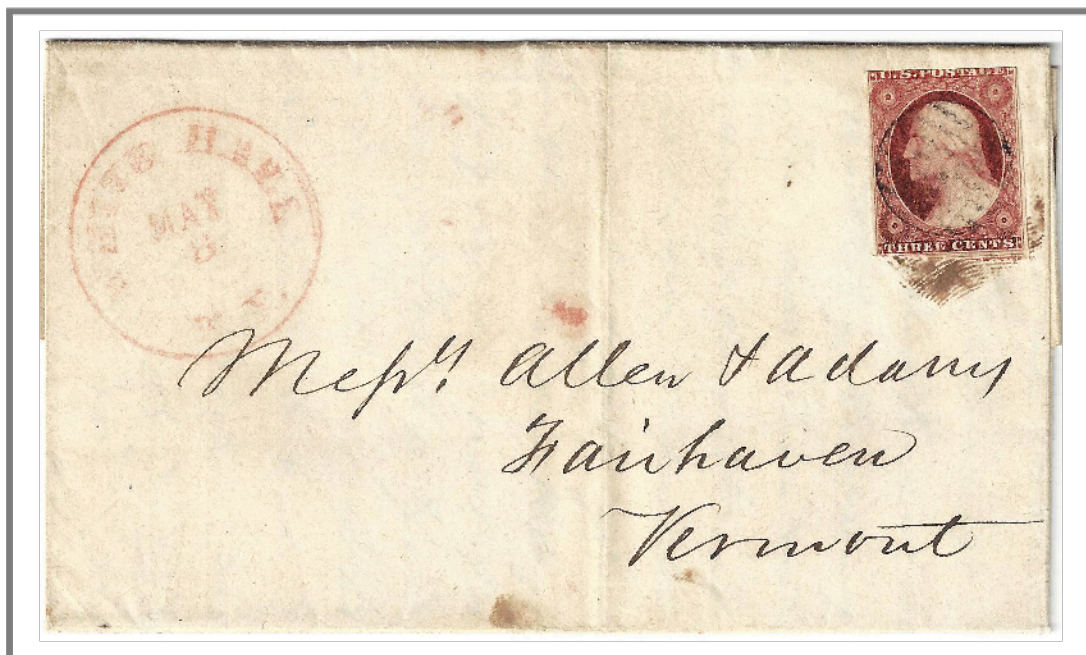 WHITE HALL
MAY
8
N.Y.
U.S. POSTAGE
THREE CENTS
Messrs Allen & Adams
Fairhaven
Vermont